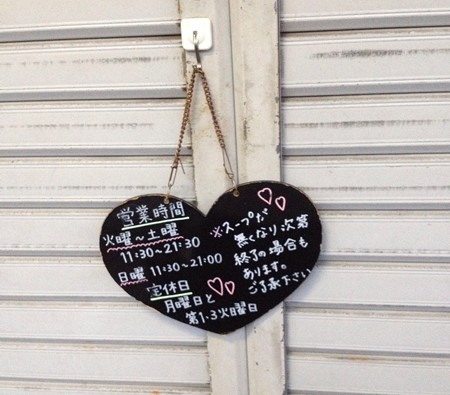 営業時間
火曜～土曜
11:30～21:30
日曜 11:30～21:00
定休日
月曜日と
第1・3火曜日
※スープが
無くなり次第
終了の場合も
あります。
ご了承下さい